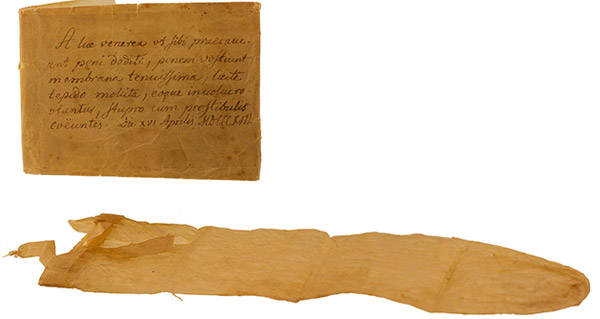 A lue venerea vt sibi præcaue-
rint peni dediti, penem vestiunt
membrana tenuissima, lacte
tepido mollita, eoque inuolucro
vtuntur, stupro cum prostibulis
coëuntes. Die XVI Aprilis